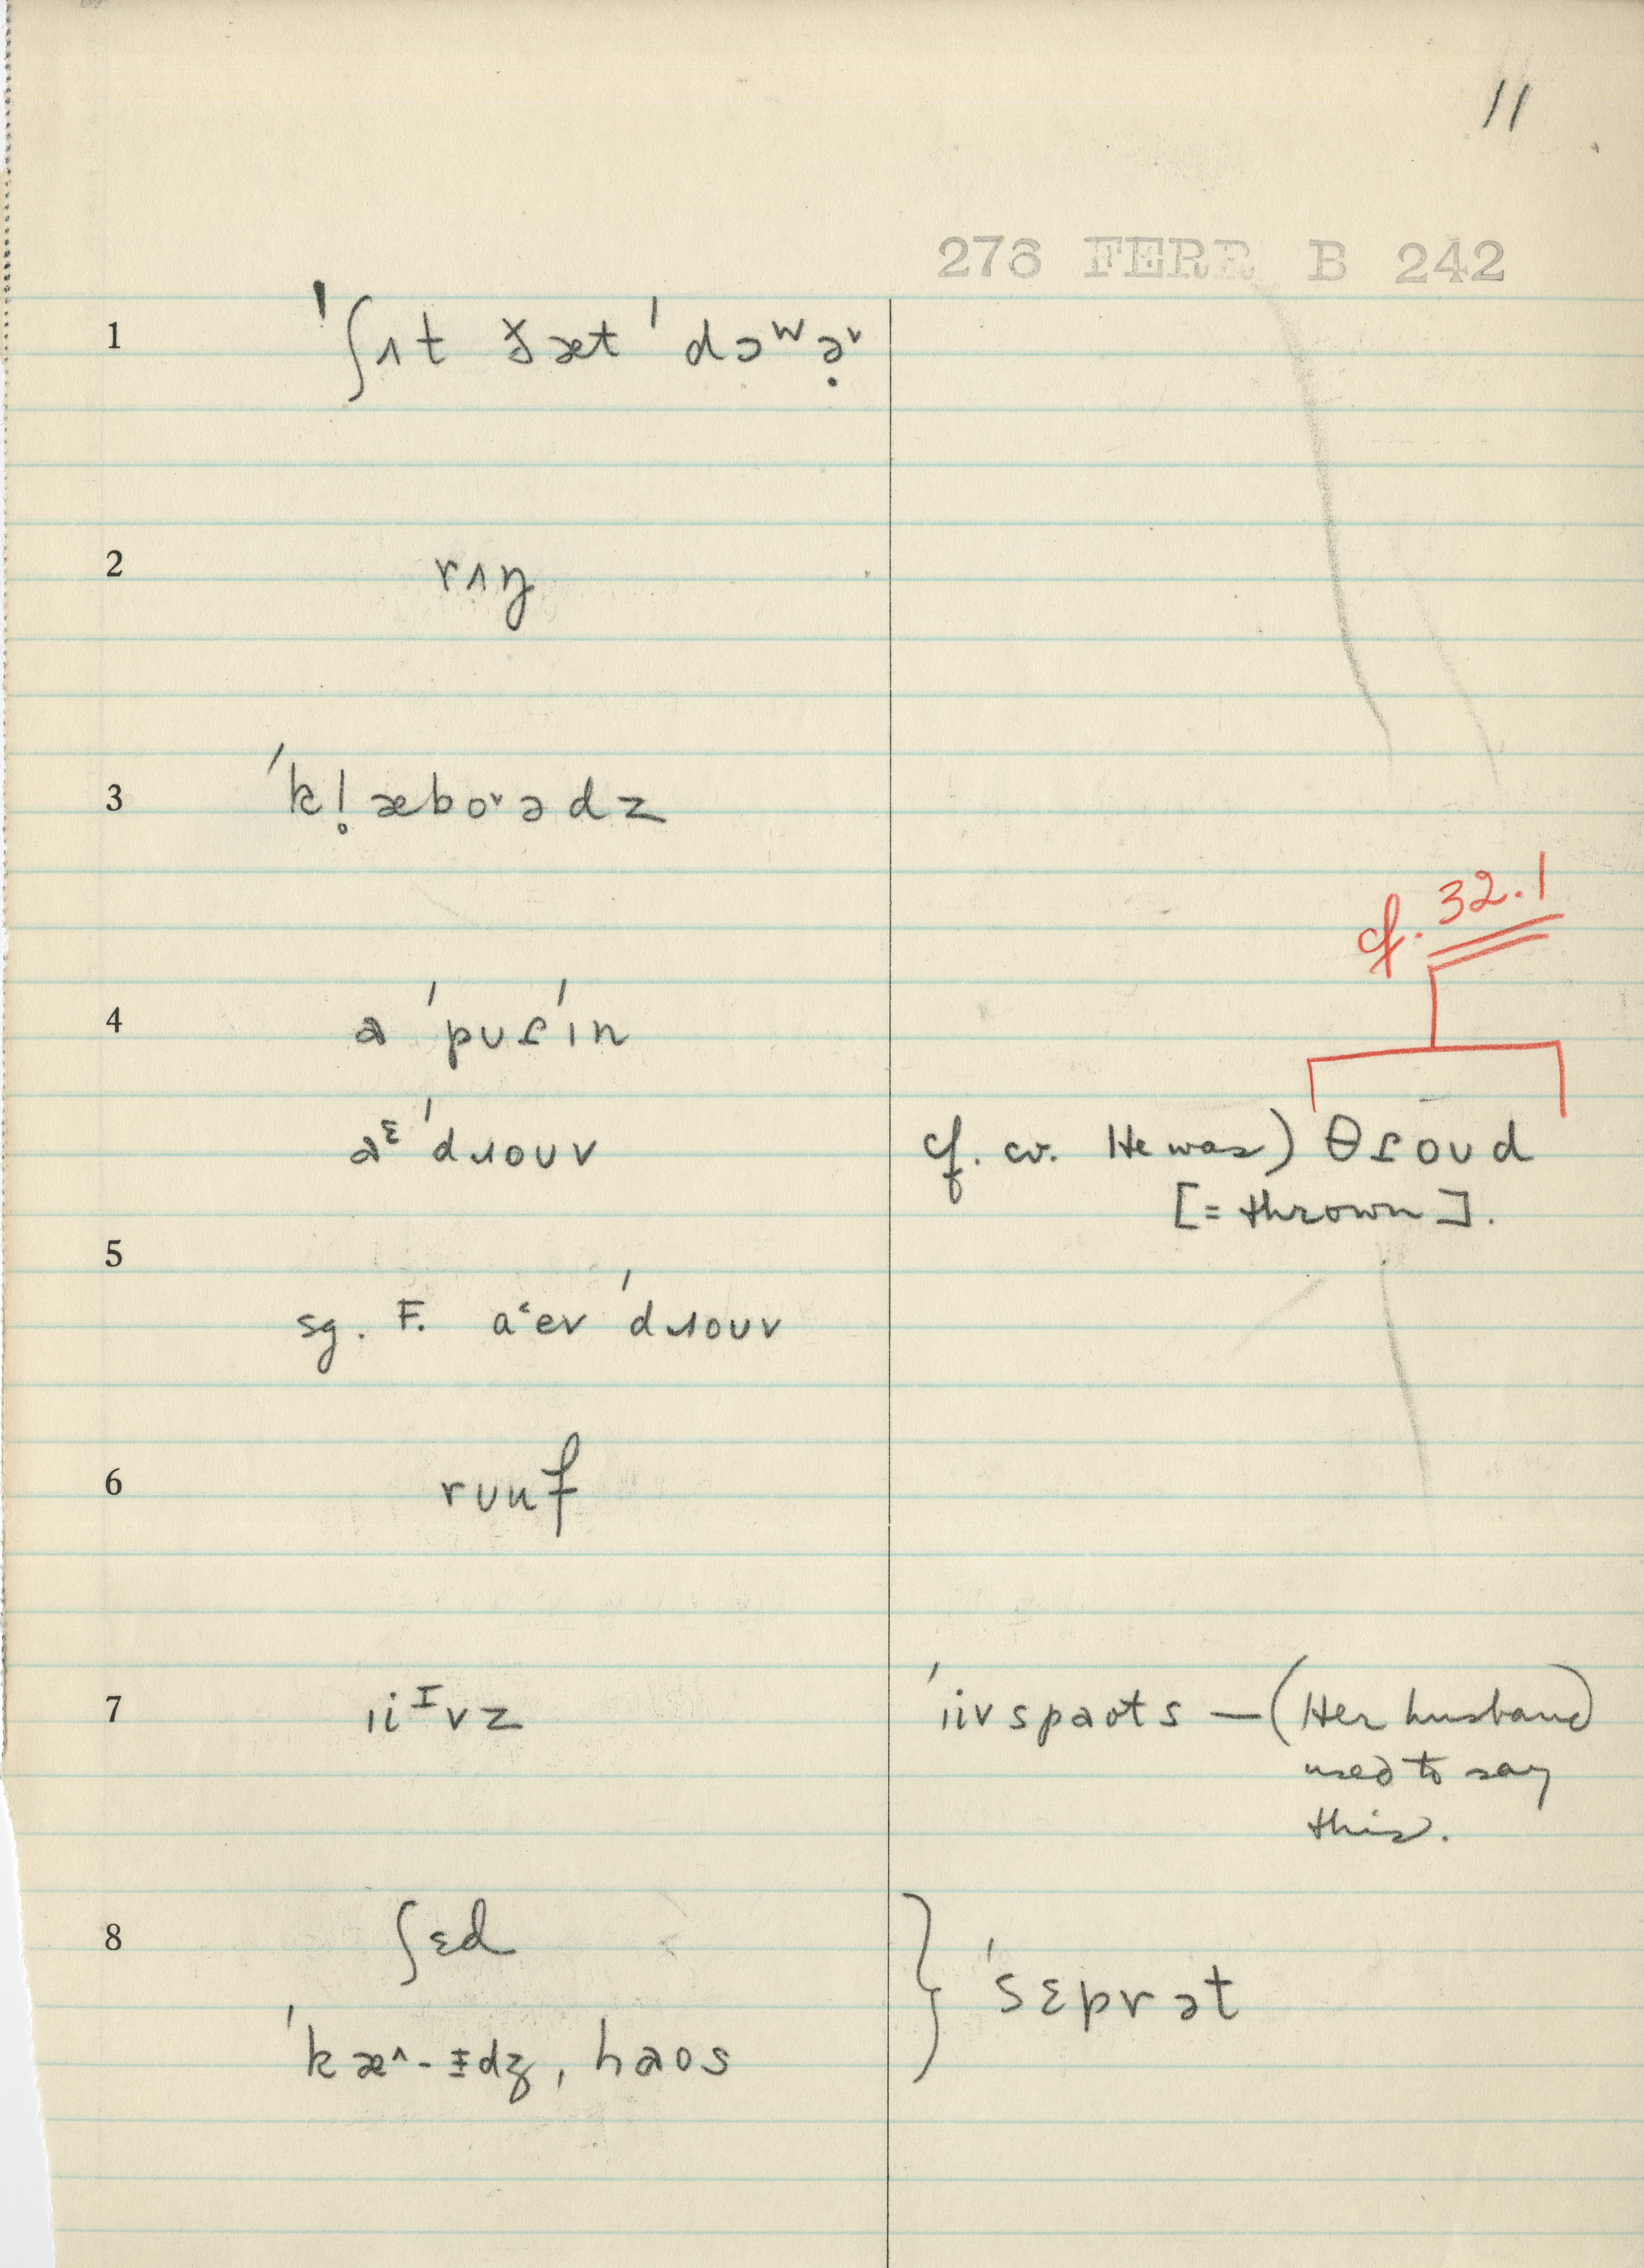 11
276 FERR B 242
1 ˈʃʌt ð̌æt ˈdɔʷə̣˅
2 rʌŋ
3 ˈk!̥æbo˅ədz
4 ə ˈpʊɾˈɪn
əᵋ ˈdɹoʊv
cf. 32.1
cf. cv. He was) θɾoʊd
[= thrown].
5
sg. F. aᵋev ˈdɹoʊv
6 rʊuf
7 ɪiᴵvz
ˈɪivspaʊts — (Her husband)
used to say
this.
8 ʃɛd
ˈsɛprət
ˈkæ^-ɪdʒ, haos